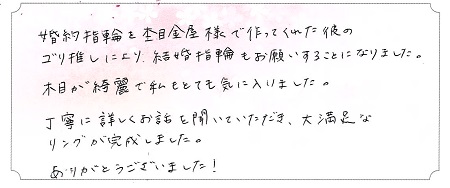 婚約指輪を杢目金屋様で作ってくれた彼の
ゴリ推しにより、結婚指輪もお願いすることになりました。
木目が綺麗で私もとても気に入りました。
丁寧に詳しくお話を聞いていただき、大満足な
リングが完成しました。
ありがとうございました!